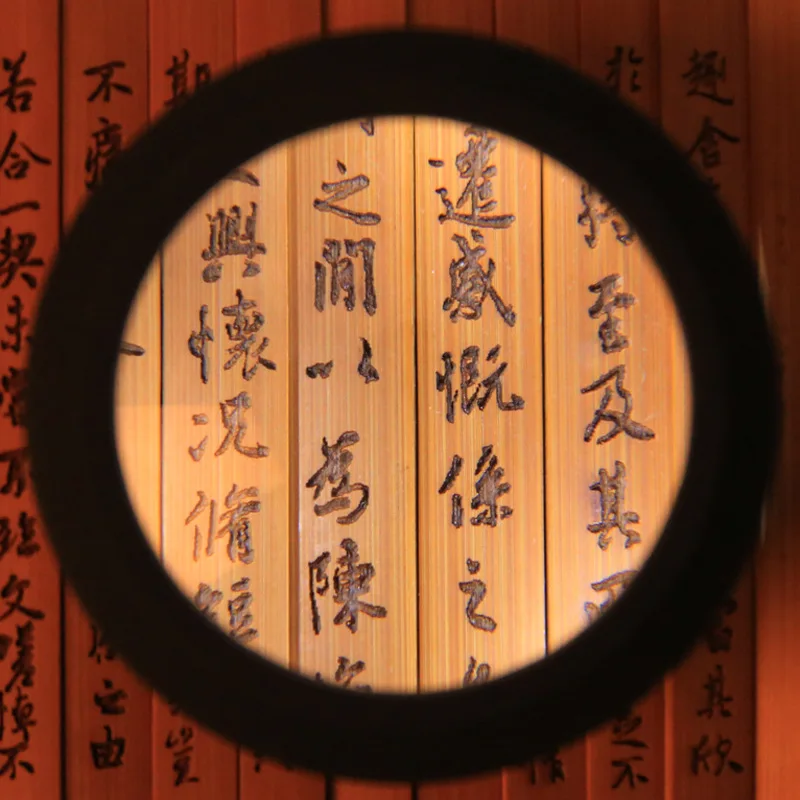 趣舍 其欣
於 之不
將至及其
遷感慨係之
之間以為陳
興懷況脩短
期 豈
不痛 之由
若合一契未嘗不臨文嗟悼不